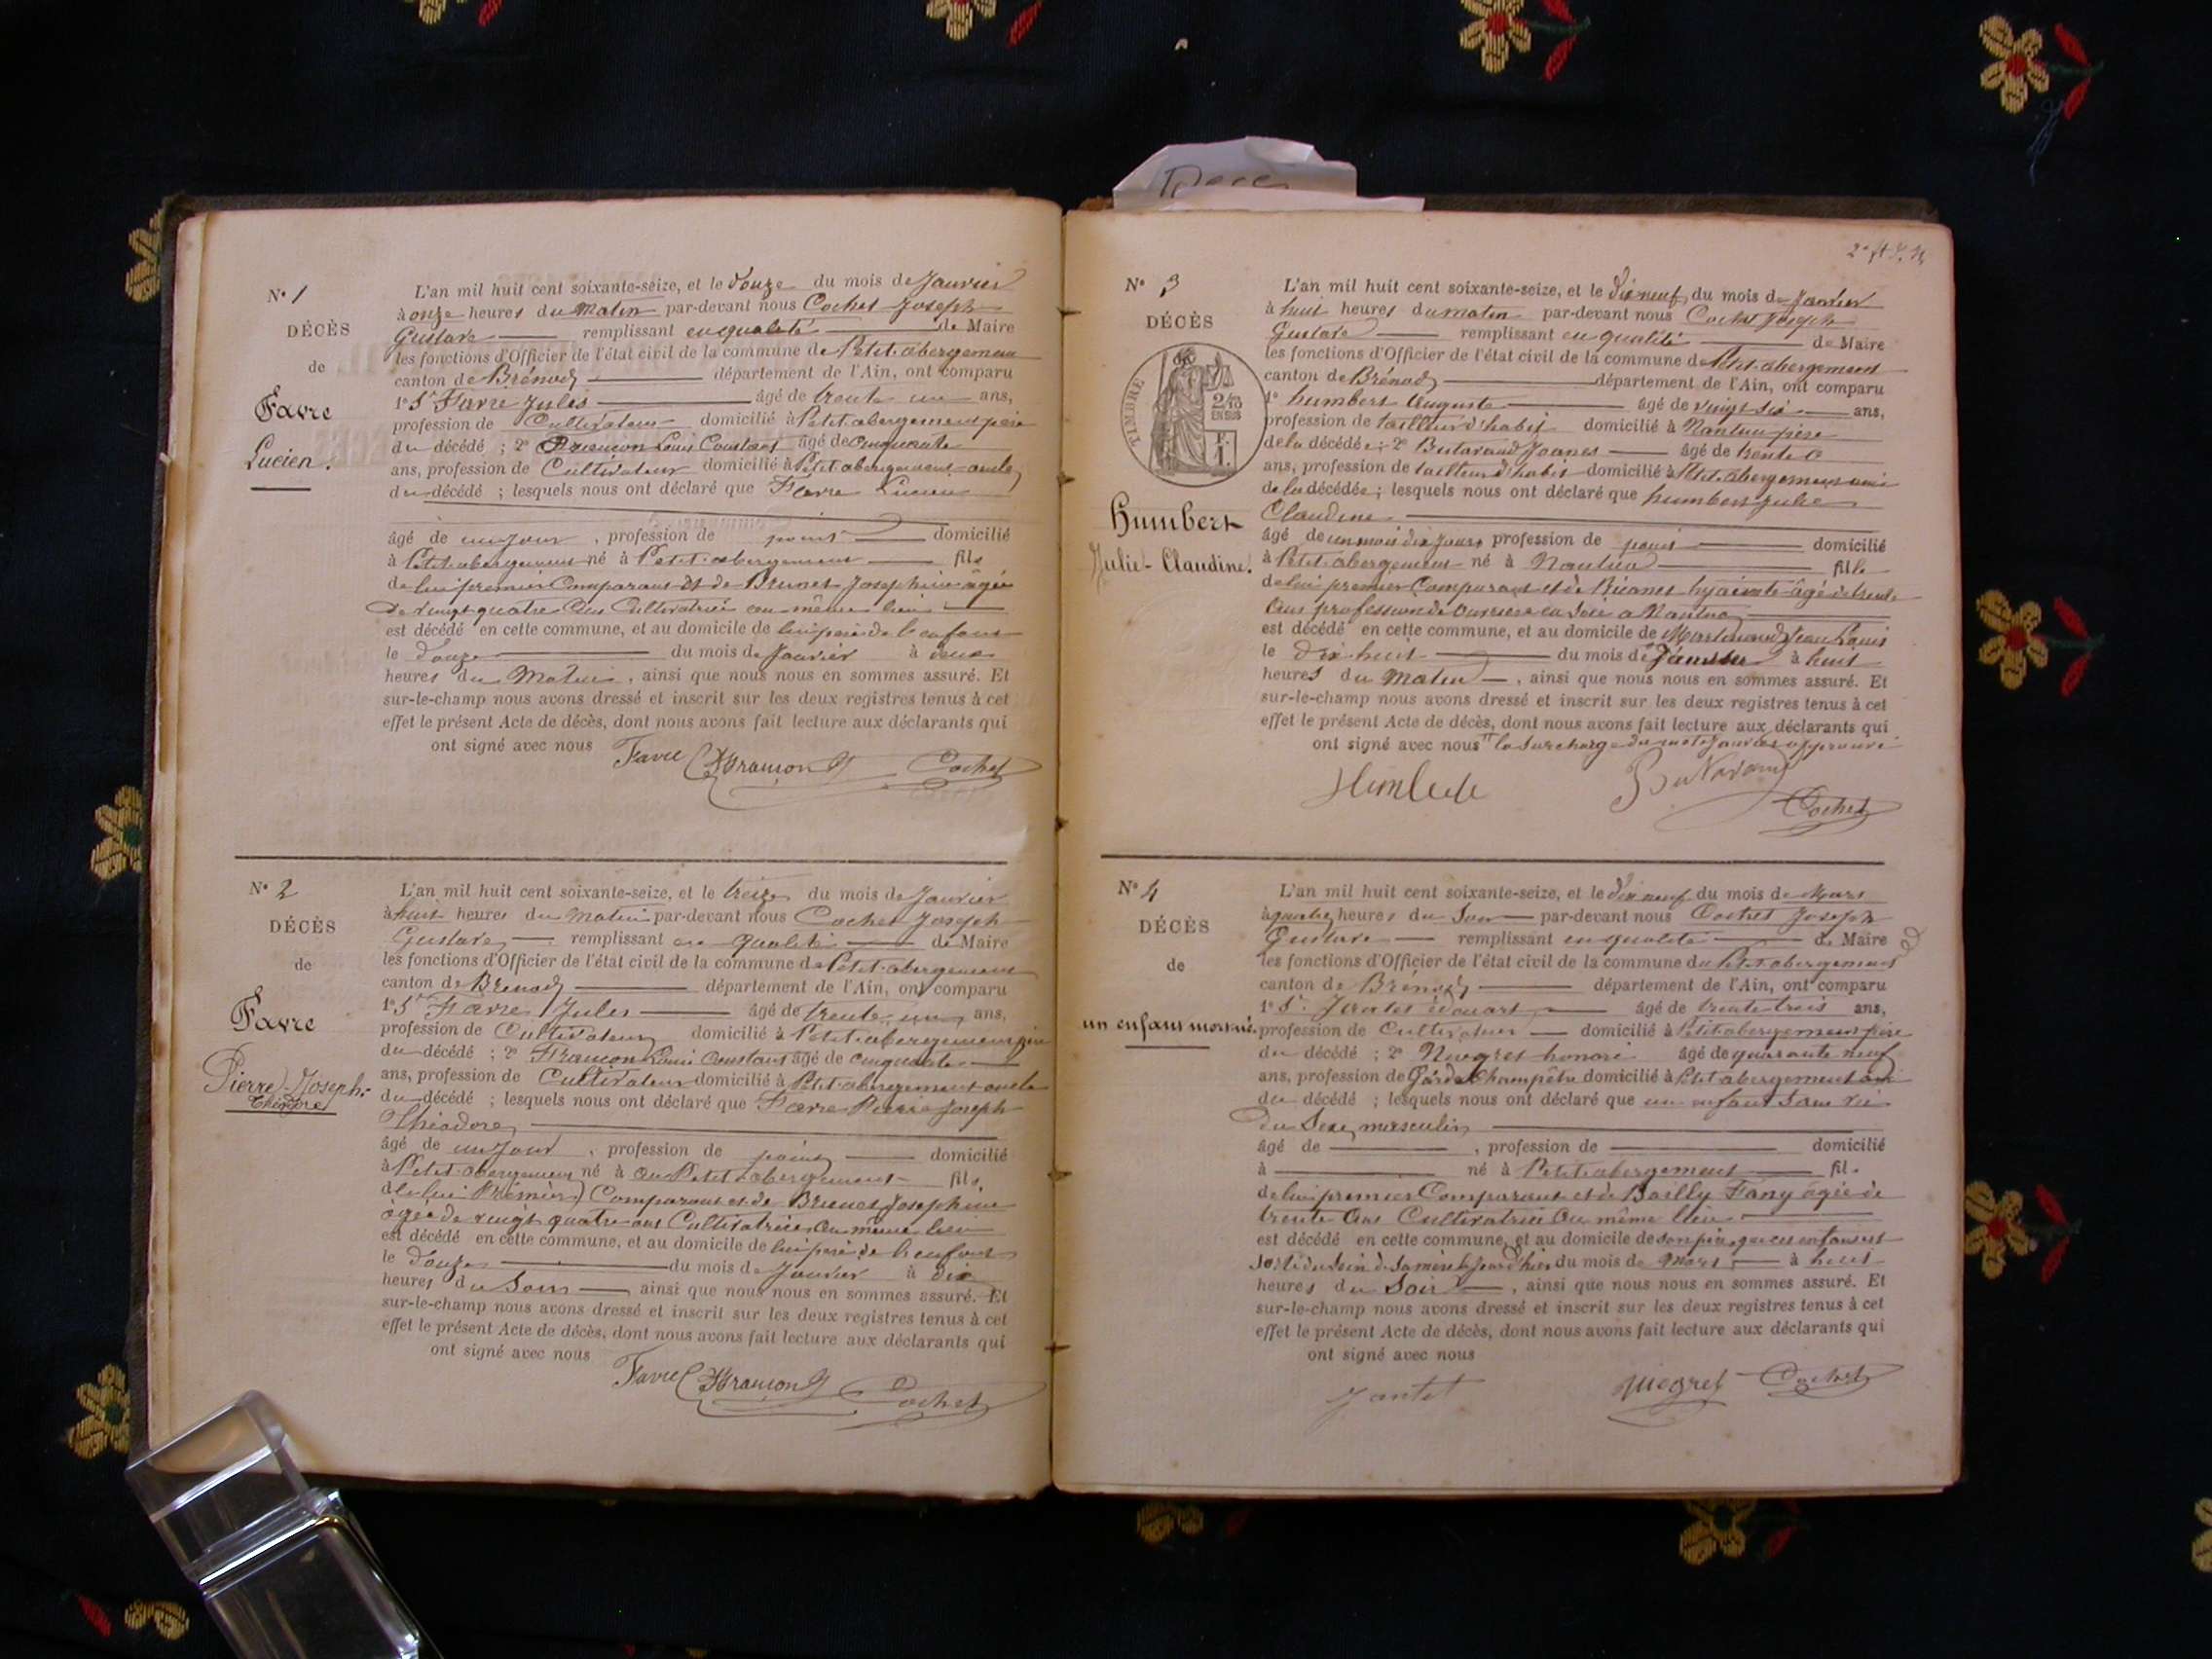 N° 1
DÉCÈS
de
Favre
Lucien.
L'an mil huit cent soixante-seize, et le douze du mois de Janvier
à onze heures du Matin par-devant nous Cochet Joseph
Gustave remplissant en qualité de Maire
les fonctions d'Officier de l'état civil de la commune de Petit abergement
canton de Brénod département de l'Ain, ont comparu
1° Sr Favre Jules âgé de trente un ans,
profession de Cultivateur domicilié à Petit abergement père
du décédé ; 2° Françon Louis Constant âgé de cinquante
ans, profession de Cultivateur domicilié à Petit abergement oncle
du décédé ; lesquels nous ont déclaré que Favre Lucien
âgé de un jour , profession de point domicilié
à Petit abergement né à Petit abergement fils
de lui premier Comparant et de Brunet Josephine âgée
de vingt quatre ans Cultivatrice au même lieu
est décédé en cette commune, et au domicile de lui père de l'enfant
le douze du mois de Janvier à
heures du Matin , ainsi que nous nous en sommes assuré. Et
sur-le-champ nous avons dressé et inscrit sur les deux registres tenus à cet
effet le présent Acte de décès, dont nous avons fait lecture aux déclarants qui
ont signé avec nous
Favre Françon Cochet
N° 2
DÉCÈS
de
Favre
Pierre-Joseph-
Théodore
L'an mil huit cent soixante-seize, et le treize du mois de Janvier
à huit heures du Matin par-devant nous Cochet Joseph
Gustave remplissant en qualité de Maire
les fonctions d'Officier de l'état civil de la commune de Petit abergement
canton de Brénod département de l'Ain, ont comparu
1° Sr Favre Jules âgé de trente un ans,
profession de Cultivateur domicilié à Petit abergement père
du décédé ; 2° Françon Louis Constant âgé de cinquante
ans, profession de Cultivateur domicilié à Petit abergement oncle
du décédé ; lesquels nous ont déclaré que Favre Pierre Joseph
Théodore
âgé de un jour , profession de point domicilié
à Petit abergement né à au Petit abergement fils
de lui Premier Comparant et de Brunet Josephine
âgée de vingt quatre ans Cultivatrice au même lieu
est décédé en cette commune, et au domicile de lui père de l'enfant
le douze du mois de Janvier à dix
heures du Soir ainsi que nous nous en sommes assuré. Et
sur-le-champ nous avons dressé et inscrit sur les deux registres tenus à cet
effet le présent Acte de décès, dont nous avons fait lecture aux déclarants qui
ont signé avec nous
Favre Françon Cochet
N° 3
DÉCÈS
TIMBRE
2/10
EN SUS
1 F.
Humbert
Julie-Claudine.
L'an mil huit cent soixante-seize, et le dix neuf du mois de Janvier
à huit heures du matin par-devant nous Cochet Joseph
Gustave remplissant en qualité de Maire
les fonctions d'Officier de l'état civil de la commune de Petit abergement
canton de Brénod département de l'Ain, ont comparu
1° humbert Auguste âgé de vingt six ans,
profession de tailleur d'habit domicilié à Nantua père
de la décédée ; 2° Butavand Joanes âgé de trente
ans, profession de tailleur d'habit domicilié à Petit abergement ami
de la décédée ; lesquels nous ont déclaré que humbert julie
Claudine
âgé de un mois dix jours profession de point domicilié
à Petit abergement né à Nantua fille
de lui premier Comparant et de hyacinte âgé de trente
ans profession de ouvrière en soie a Nantua
est décédé en cette commune, et au domicile de Martinand Jean Louis
le dix huit du mois de Janvier à huit
heures du Matin , ainsi que nous nous en sommes assuré. Et
sur-le-champ nous avons dressé et inscrit sur les deux registres tenus à cet
effet le présent Acte de décès, dont nous avons fait lecture aux déclarants qui
ont signé avec nous la surcharge du mot Janvier approuvé
Humbert Butavand
Cochet
N° 4
DÉCÈS
de
un enfant mort né.
L'an mil huit cent soixante-seize, et le dix neuf du mois de Mars
à quatre heures du Soir par-devant nous Cochet Joseph
Gustave remplissant en qualité de Maire
les fonctions d'Officier de l'état civil de la commune du Petit abergement
canton de Brénod département de l'Ain, ont comparu
1° Sr. Jantet édouart âgé de trente trois ans,
profession de Cultivateur domicilié à Petit abergement père
du décédé ; 2° Niogret honoré âgé de quarante neuf
ans, profession de Garde Champêtre domicilié à Petit abergement ami
du décédé ; lesquels nous ont déclaré que un enfant sans vie
du Sexe masculin
âgé de , profession de domicilié
à né à Petit abergement fil
de lui premier Comparant et de Bailly Fany âgée de
trente ans Cultivatrice au même lieu
est décédé en cette commune, et au domicile de son père, que cet enfant est
sorti du sein de sa mère le jour d'hier du mois de Mars à huit
heures du Soir , ainsi que nous nous en sommes assuré. Et
sur-le-champ nous avons dressé et inscrit sur les deux registres tenus à cet
effet le présent Acte de décès, dont nous avons fait lecture aux déclarants qui
ont signé avec nous
Jantet Niogret Cochet